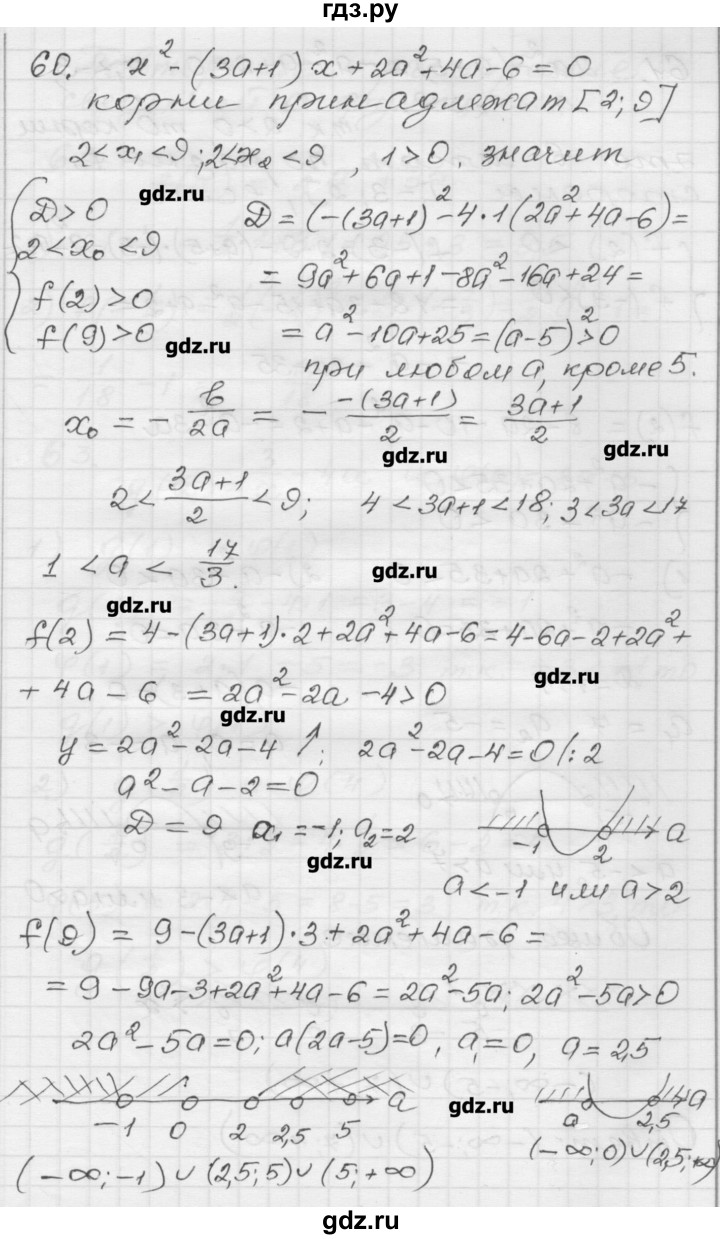 гдз.ру
60. x² - (3a+1)x + 2a² + 4a - 6 = 0
корни принадлежат [2; 9]
2 < x₁ < 9; 2 < x₂ < 9 , 1 > 0. значит
D > 0
2 < x₀ < 9
f(2) > 0
f(9) > 0
gdz.ru
D = (-(3a+1)² - 4·1(2a² + 4a - 6) =
= 9a² + 6a + 1 - 8a² - 16a + 24 =
= a² - 10a + 25 = (a-5)² > 0
при любом a, кроме 5.
gdz.ru
x₀ = - b/2a = - -(3a+1)/2 = 3a+1/2
gdz.ru
gdz.ru
2 < 3a+1/2 < 9; 4 < 3a+1 < 18; 3 < 3a < 17
1 < a < 17/3.
gdz.ru
gdz.ru
f(2) = 4 - (3a+1)·2 + 2a² + 4a - 6 = 4 - 6a - 2 + 2a² +
gdz.ru
+ 4a - 6 = 2a² - 2a - 4 > 0
gdz.ru
y = 2a² - 2a - 4 ↑; 2a² - 2a - 4 = 0 /: 2
a² - a - 2 = 0
D = 9 a₁ = -1; a₂ = 2
gdz.ru
-1 2 a
a < -1 или a > 2
f(9) = 9 - (3a+1)·3 + 2a² + 4a - 6 =
= 9 - 9a - 3 + 2a² + 4a - 6 = 2a² - 5a; 2a² - 5a > 0
2a² - 5a = 0; a(2a-5) = 0, a₁ = 0, a = 2,5
-1 0 2 2,5 5 a
gdz.ru
a 2,5 a
(-∞; 0) ∪ (2,5; +∞)
(-∞; -1) ∪ (2,5; 5) ∪ (5; +∞)
gdz.ru